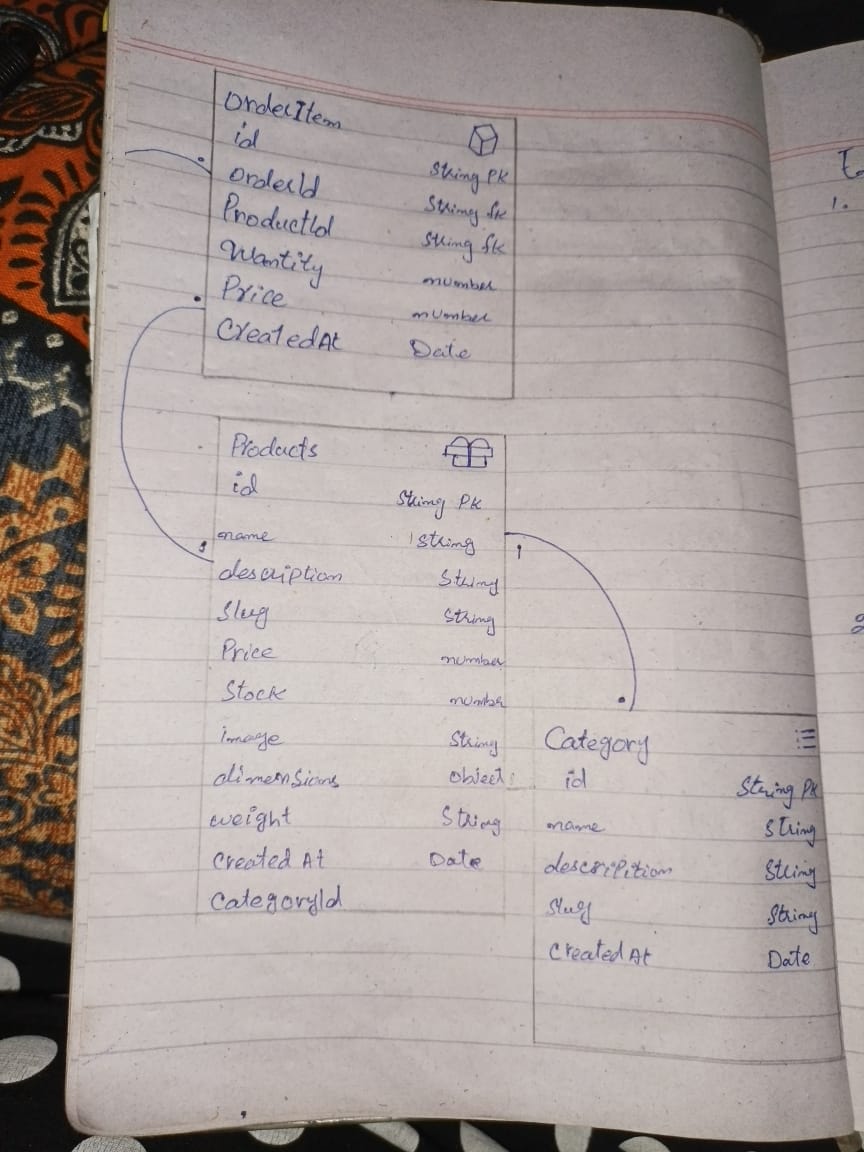 OrderItem
id String PK
OrderId String fk
ProductId String fk
Wantity number
Price number
CreatedAt Date
Products
id String PK
name String
description String
Slug String
Price number
Stock number
image String
dimensions object
weight String
Created At Date
CategoryId
Category
id String PK
name String
descripition String
Slug String
Created At Date
1.